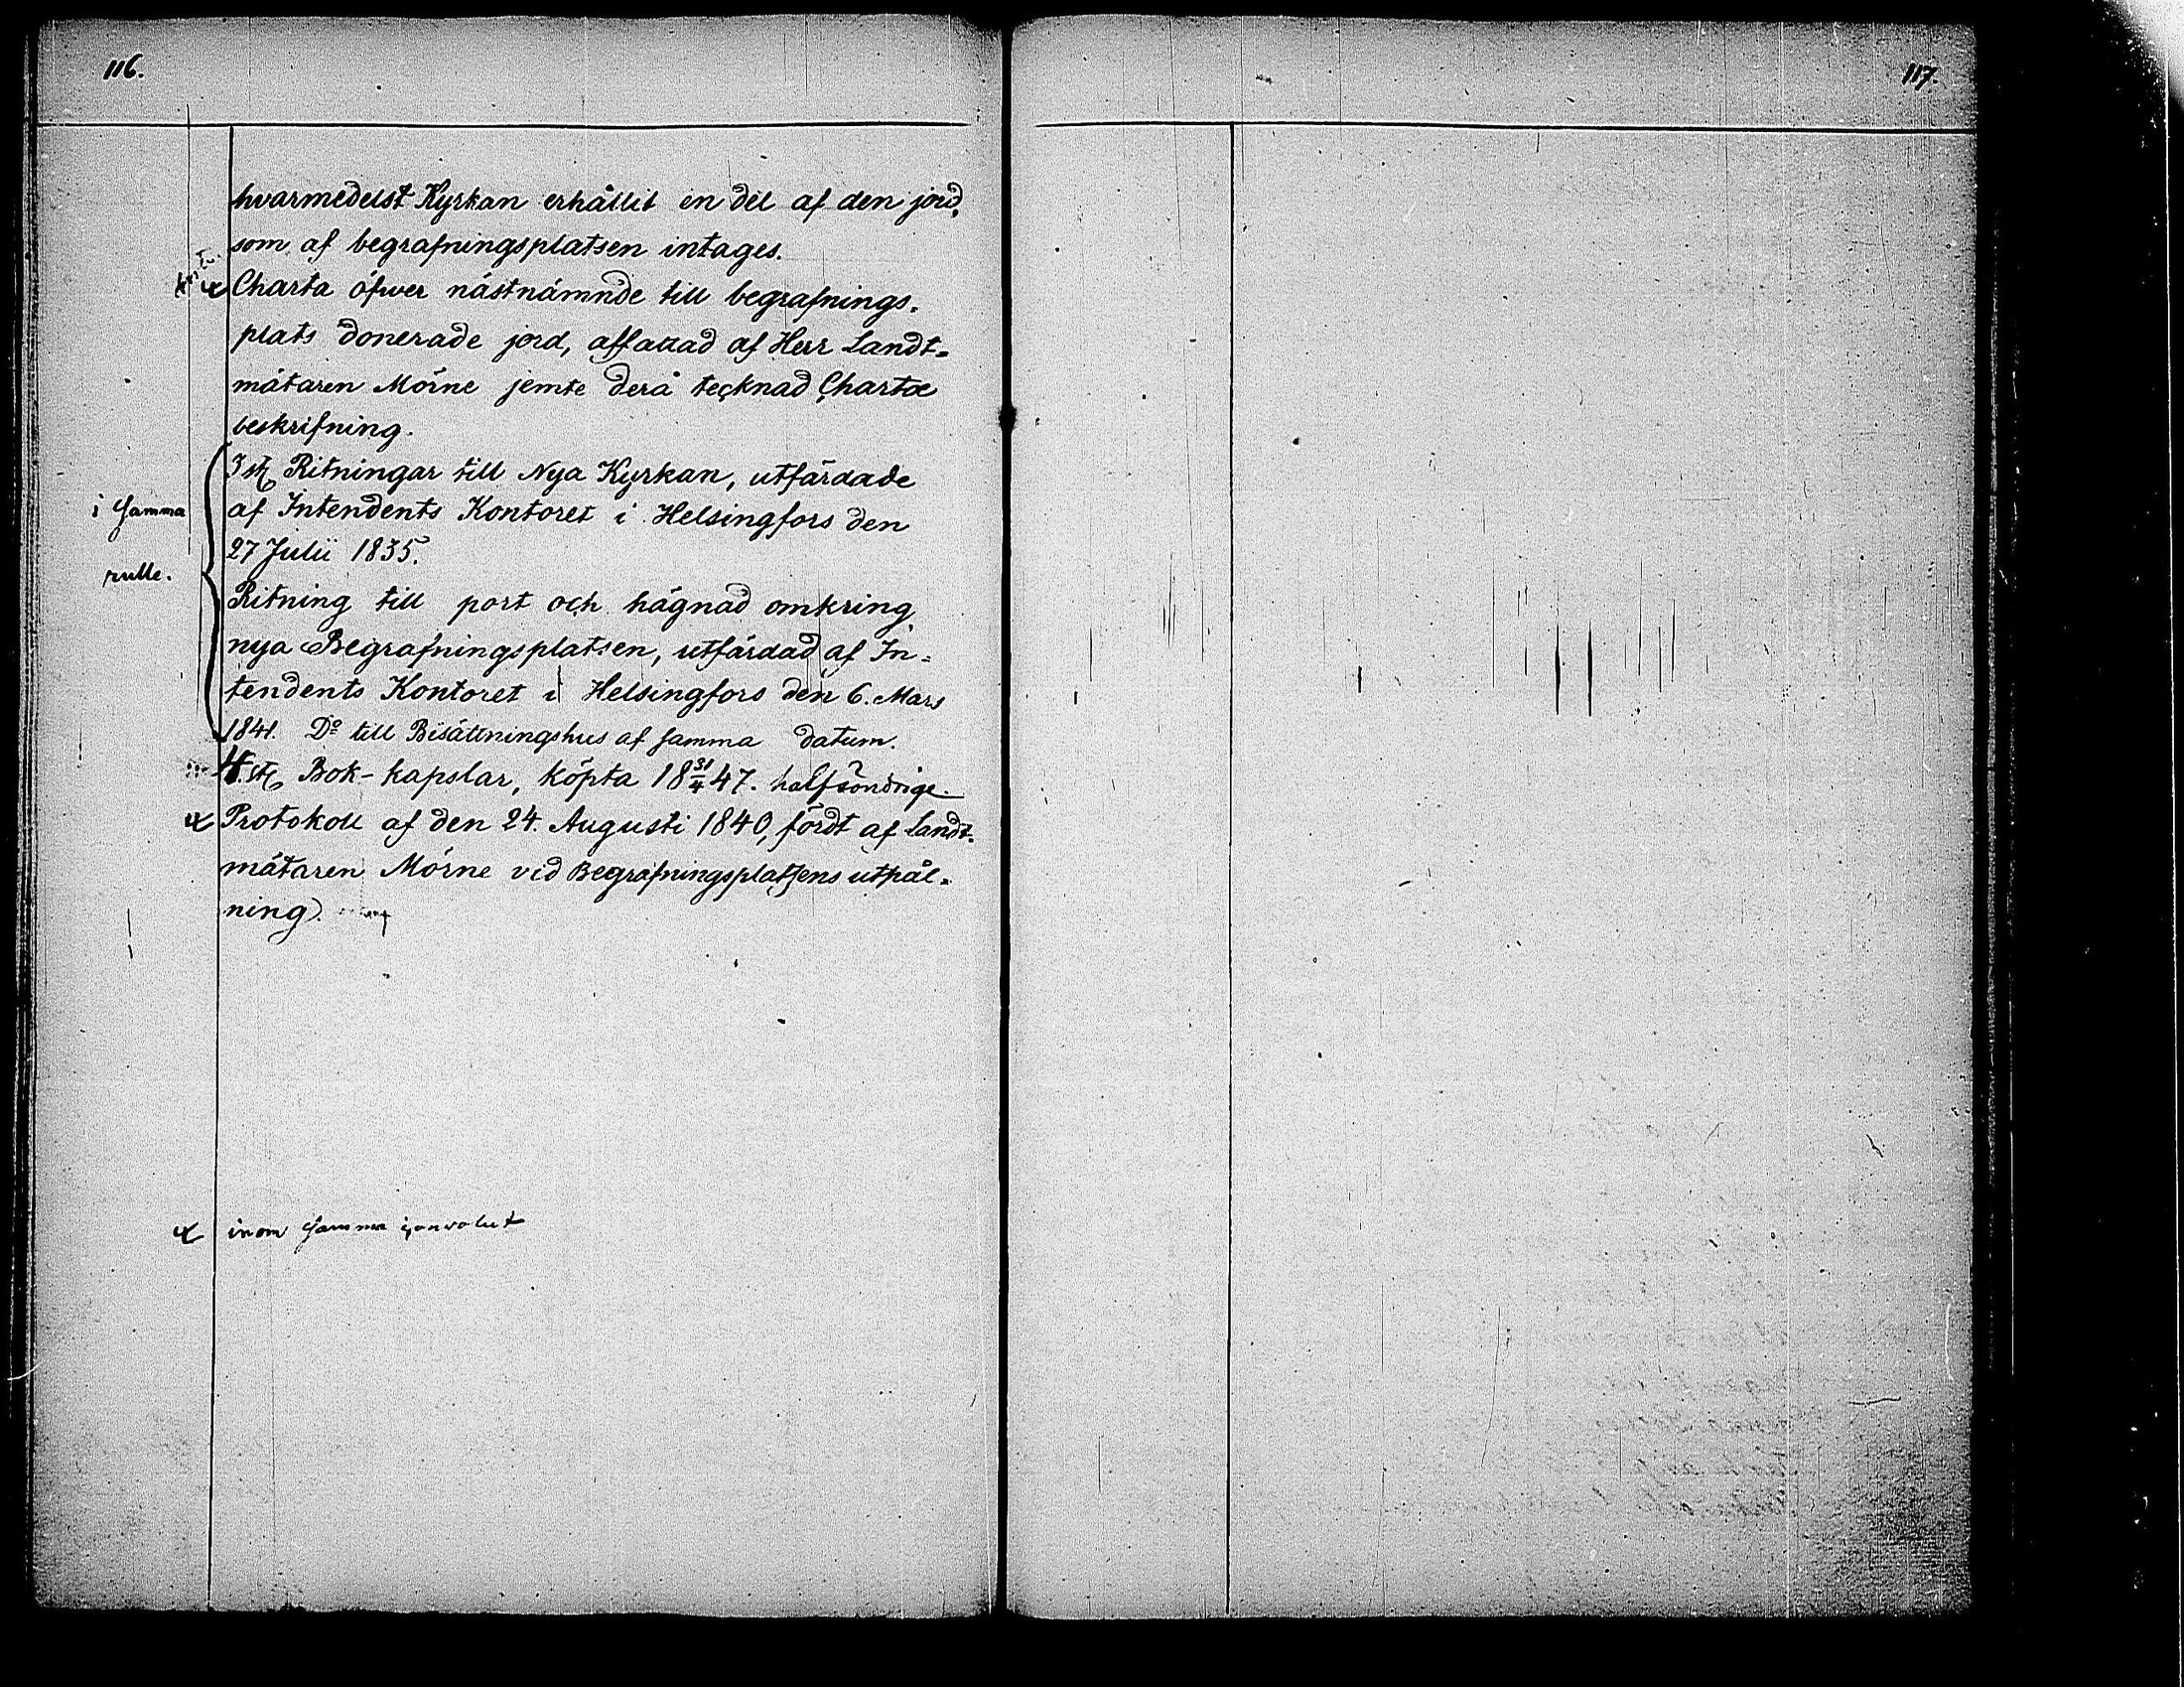 116.
117.
hvarmedelst Kyrkan erhållit en del af den jord,
som af begrafningsplatsen intages.
Charta öfwer nästnämnde till begrafnings=
plats donerade jord, affattad af Herr Landt=
mätaren Mörne jemte derå tecknad Chartæ
beskrifning.
3 st. Ritningar till Nya Kyrkan, utfärdade
i samma
af Intendents Kontoret i Helsingfors den
27 Julii 1835.
rulle.
Ritning till port och hägnad omkring
nya Begrafningsplatsen, utfärdad af In=
tendents Kontoret i Helsingfors den 6. Mars
1841. Do till Bisättningshus af samma datum.
4. st. Bok-kapslar, köpta 18 31/4 47. halfsöndrige.
Protokoll af den 24. Augusti 1840, fördt af Landt=
mätaren Mörne vid Begrafningsplatsens utpål=
ning.
inom samma convolut